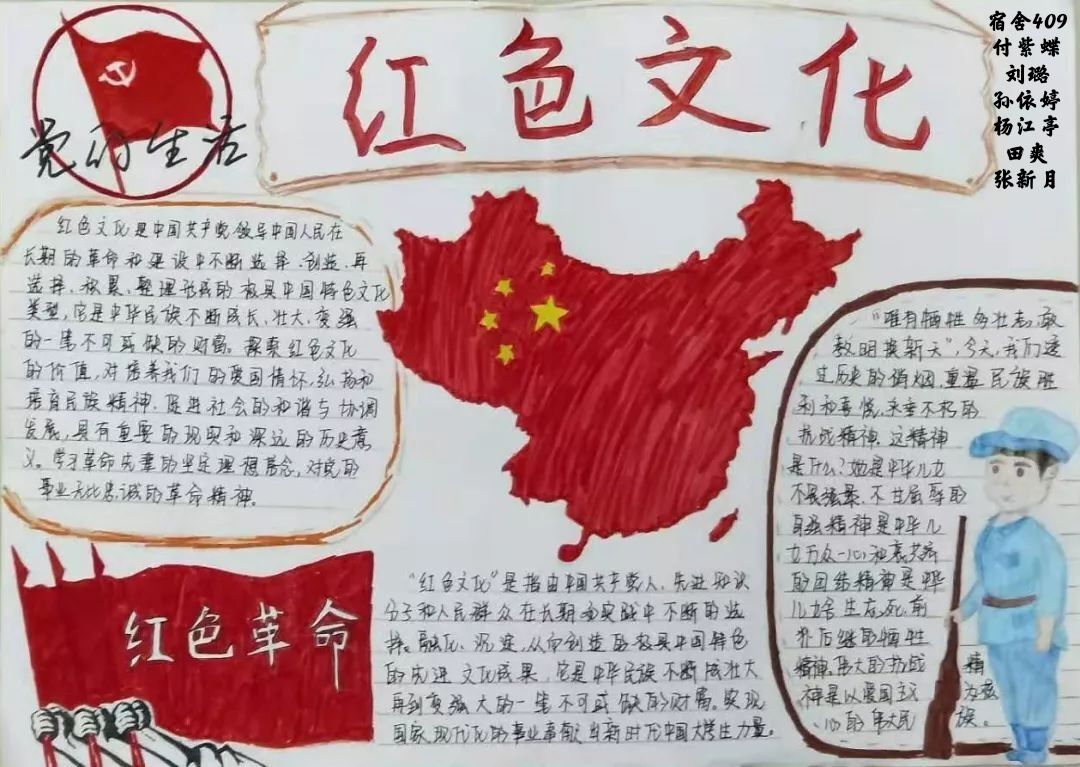 红色文化
宿舍409
付紫蝶
刘璐
孙依婷
杨江亭
田爽
张新月
党的生活
红色文化是中国共产党领导中国人民在
长期的革命和建设中不断选择、创造、再
选择、积累、整理形成的极具中国特色文化
类型,它是中华民族不断成长、壮大、变强
的一笔不可或缺的财富。探索红色文化
的价值,对培养我们的爱国情怀,弘扬和
培育民族精神,促进社会的和谐与协调
发展,具有重要的现实和深远的历史意
义。学习革命先辈的坚定理想信念,对党的
事业无比忠诚的革命精神。
红色革命
“红色文化”是指由中国共产党人、先进知识
分子和人民群众在长期的实践中不断的选
择、融化、沉淀,从而创造的极具中国特色
的先进文化成果,它是中华民族不断成壮大
再到变强大的一笔不可或缺的财富。实现
国家现代化的事业奉献出新时代中国大学生力量。
“唯有牺牲多壮志,敢
教明换新天”,今天,我们透
过历史的硝烟,重温民族胜
利和喜悦,永垂不朽的
抗战精神,这精神
是什么?她是中华儿女
不畏强暴、不甘屈辱的
自强精神是中华儿
女万众一心和衷共济
的团结精神是中华
儿舍生忘死,前
朴后继的牺牲
精神,伟大的抗战精
神是以爱国主义为
心的伟大民族。